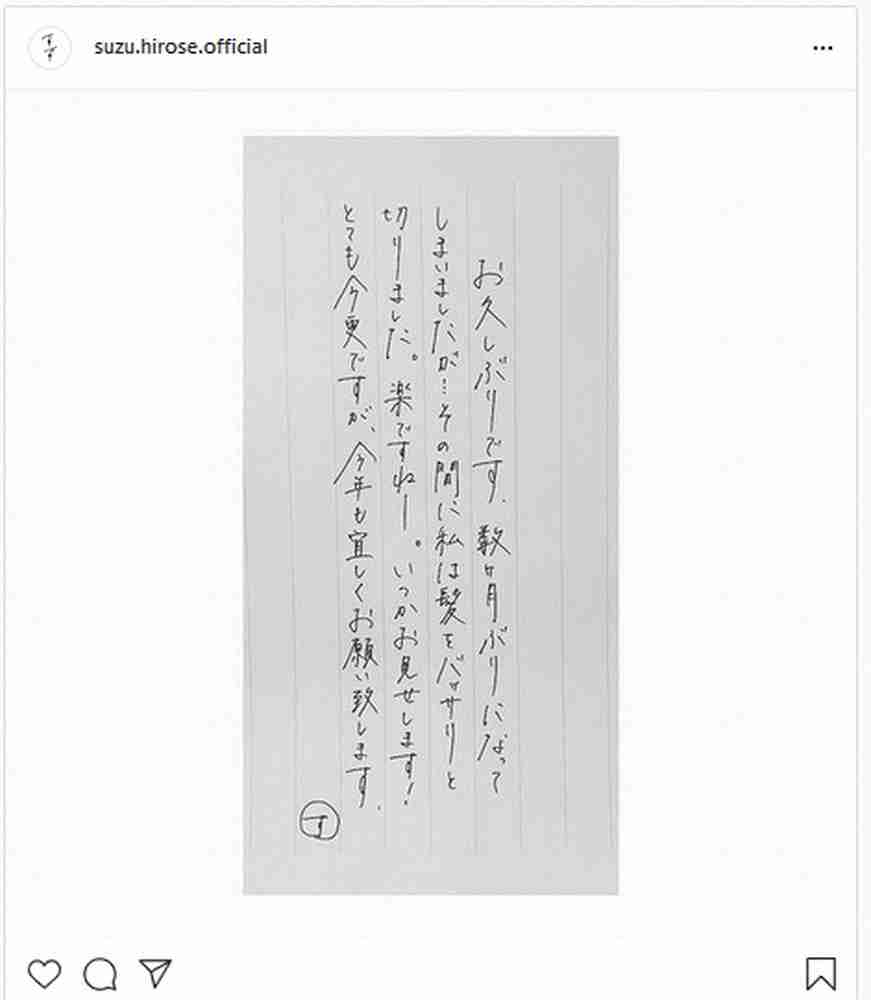 suzu.hirose.official
お久しぶりです。数ヶ月ぶりになって
しまいましたが…その間に私は髪をバッサリと
切りました。楽ですねー。いつかお見せします!
とても今更ですが、今年も宜しくお願い致します。
す